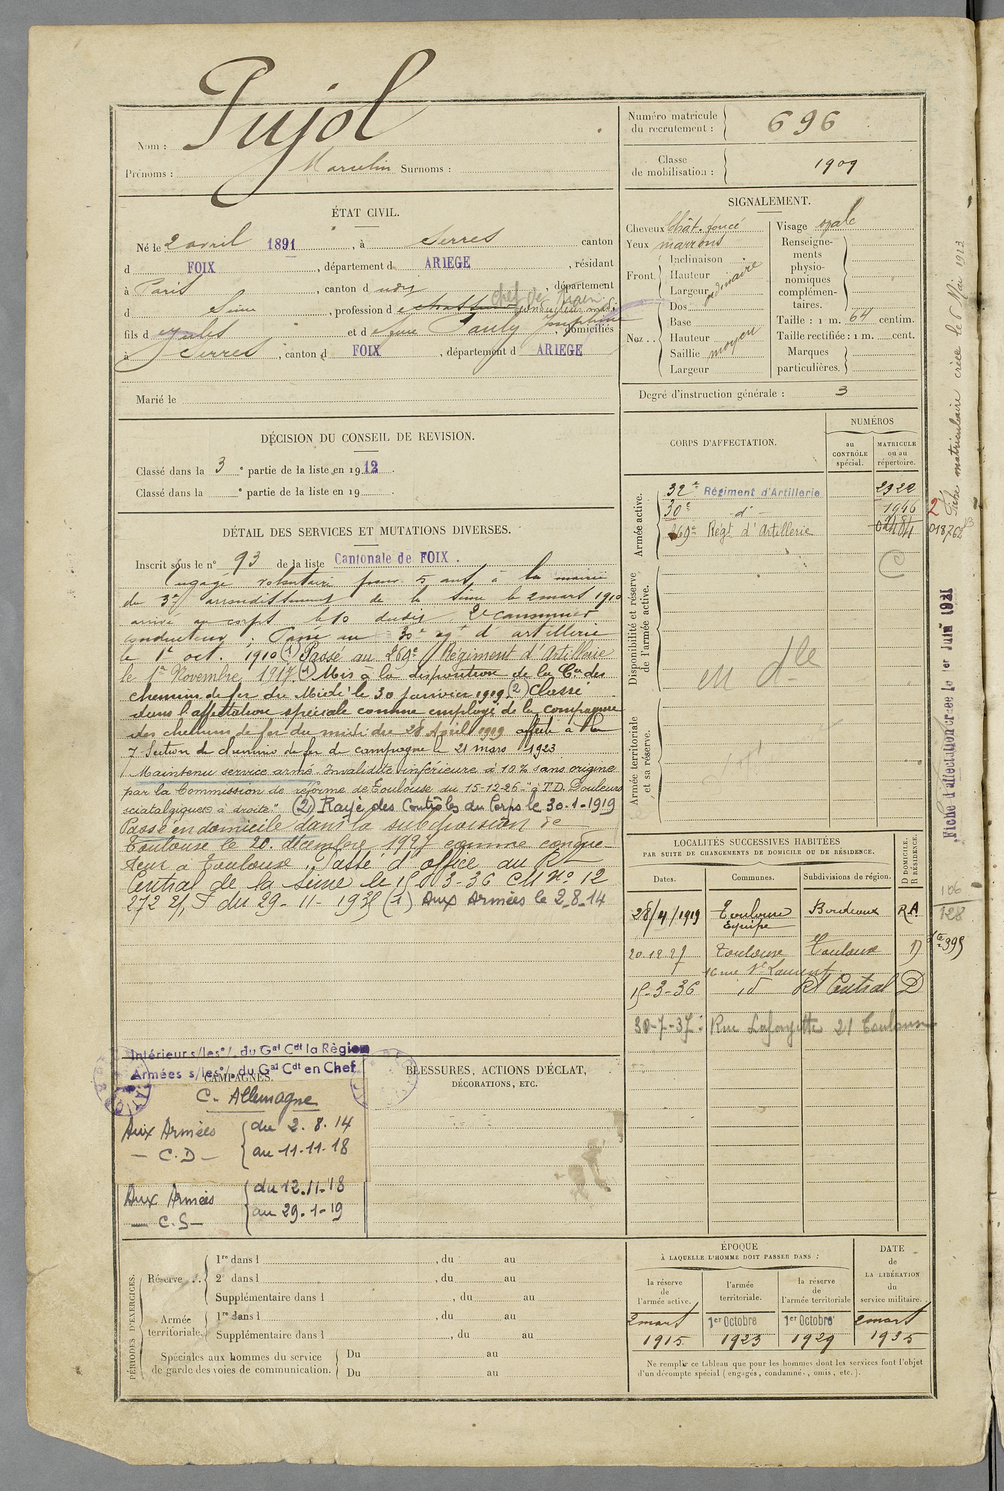 Nom : Pujol
Prénoms : Marcelin Surnoms :
Numéro matricule du recrutement : 696
Classe de mobilisation : 1909
ÉTAT CIVIL.
Né le 2 avril 1891, à Serres canton
d FOIX, département d. ARIEGE, résidant
à Paris, canton d udis, département
d Seine, profession de chef de train
fils d e Jules et d e Pauly Josephine domiciliés
à Serres, canton d FOIX, département d ARIEGE
Marié le
SIGNALEMENT.
Cheveux chât. foncé
Yeux marrons
Front. Inclinaison
Hauteur
Largeur ordinaire
Nez . . Dos
Base
Hauteur
Saillie moyen
Largeur
Visage ovale
Renseigne-
ments
physio-
nomiques
complémen-
taires.
Taille : 1 m. 64 centim.
Taille rectifiée : 1 m. cent.
Marques
particulières.
Degré d'instruction générale : 3
DÉCISION DU CONSEIL DE REVISION.
Classé dans la 3e partie de la liste en 1912.
Classé dans la e partie de la liste en 19
DÉTAIL DES SERVICES ET MUTATIONS DIVERSES.
Inscrit sous le no 93 de la liste Cantonale de FOIX.
Engagé volontaire pour 5 ans, à la mairie
du 3e arrondissement de la Seine le 2 mars 1910
arrivé au corps le 10 dudit 2e canonnier
conducteur. Passé au 30e rgt d'artillerie
le 1er oct. 1910 (1) Passé au 269e Régiment d'Artillerie
le 1er Novembre 1917. Mis à la disposition de la Cie des
chemins de fer du Midi le 30 janvier 1919 (2) Classé
dans l'affectation spéciale comme employé de la compagnie
des chemins de fer du midi du 28 Avril 1919 affecté à la
7e Section de chemins de fer de campagne le 21 mars 1923
Maintenu service armé. Invalidité inférieure à 10% sans origine
par la Commission de réforme de Toulouse du 15-12-26 "P.D. Douleurs
sciatalgiques à droite". (2) Rayé des Contrôles du Corps le 30-1-1919
Passé en domicile dans la subdivision de
Toulouse le 20. décembre 1927 comme conduc-
teur à Toulouse. Passé d'office au Rt
Central de la Seine le 15-3-36 CM No 12
272 2/1 S du 29-11-1935 (1) Aux Armées le 2-8-14
CORPS D'AFFECTATION.
NUMÉROS
au CONTRÔLE spécial.
MATRICULE ou au répertoire.
Armée active.
32e Régiment d'Artillerie 2320
30e -d°- 1946
269e Régt d'Artillerie
Disponibilité et réserve de l'armée active.
Armée territoriale et sa réserve.
Fiche matriculaire créée le 6 Mai 1913
Fiche d'affectation créée le 1er Juin 1931
LOCALITÉS SUCCESSIVES HABITÉES
PAR SUITE DE CHANGEMENTS DE DOMICILE OU DE RÉSIDENCE.
Dates. Communes. Subdivisions de région. D DOMICILE. R RÉSIDENCE.
28/4/1919 Toulouse Bordeaux RA
Equipe
20.12.27 Toulouse Toulouse D
16 rue St Laurent
15-3-36 id Rt Central D
30-7-37 : Rue Lafayette 21 Toulouse
Intérieur s/les o/ du Gal Cdt la Région
Armées s/les o/ du Gal Cdt en Chef
CAMPAGNES.
C. Allemagne
Aux Armées du 2.8.14
— C.D — au 11-11-18
Aux Armées du 12.11.18
— C.S — au 29-1-19
BLESSURES, ACTIONS D'ÉCLAT,
DÉCORATIONS, ETC.
PÉRIODES D'EXERCICES.
Réserve . . 1re dans l , du au
2e dans l , du au
Supplémentaire dans l , du au
Armée territoriale. 1re dans l , du au
Supplémentaire dans l , du au
Spéciales aux hommes du service
de garde des voies de communication. Du au
Du au
ÉPOQUE
À LAQUELLE L'HOMME DOIT PASSER DANS :
la réserve de l'armée active.
l'armée territoriale.
la réserve de l'armée territoriale
DATE de LA LIBÉRATION du service militaire.
2 mars 1er Octobre 1er Octobre 2 mars
1915 1923 1929 1935
Ne remplir ce tableau que pour les hommes dont les services font l'objet
d'un décompte spécial (engagés, condamnés, omis, etc.).